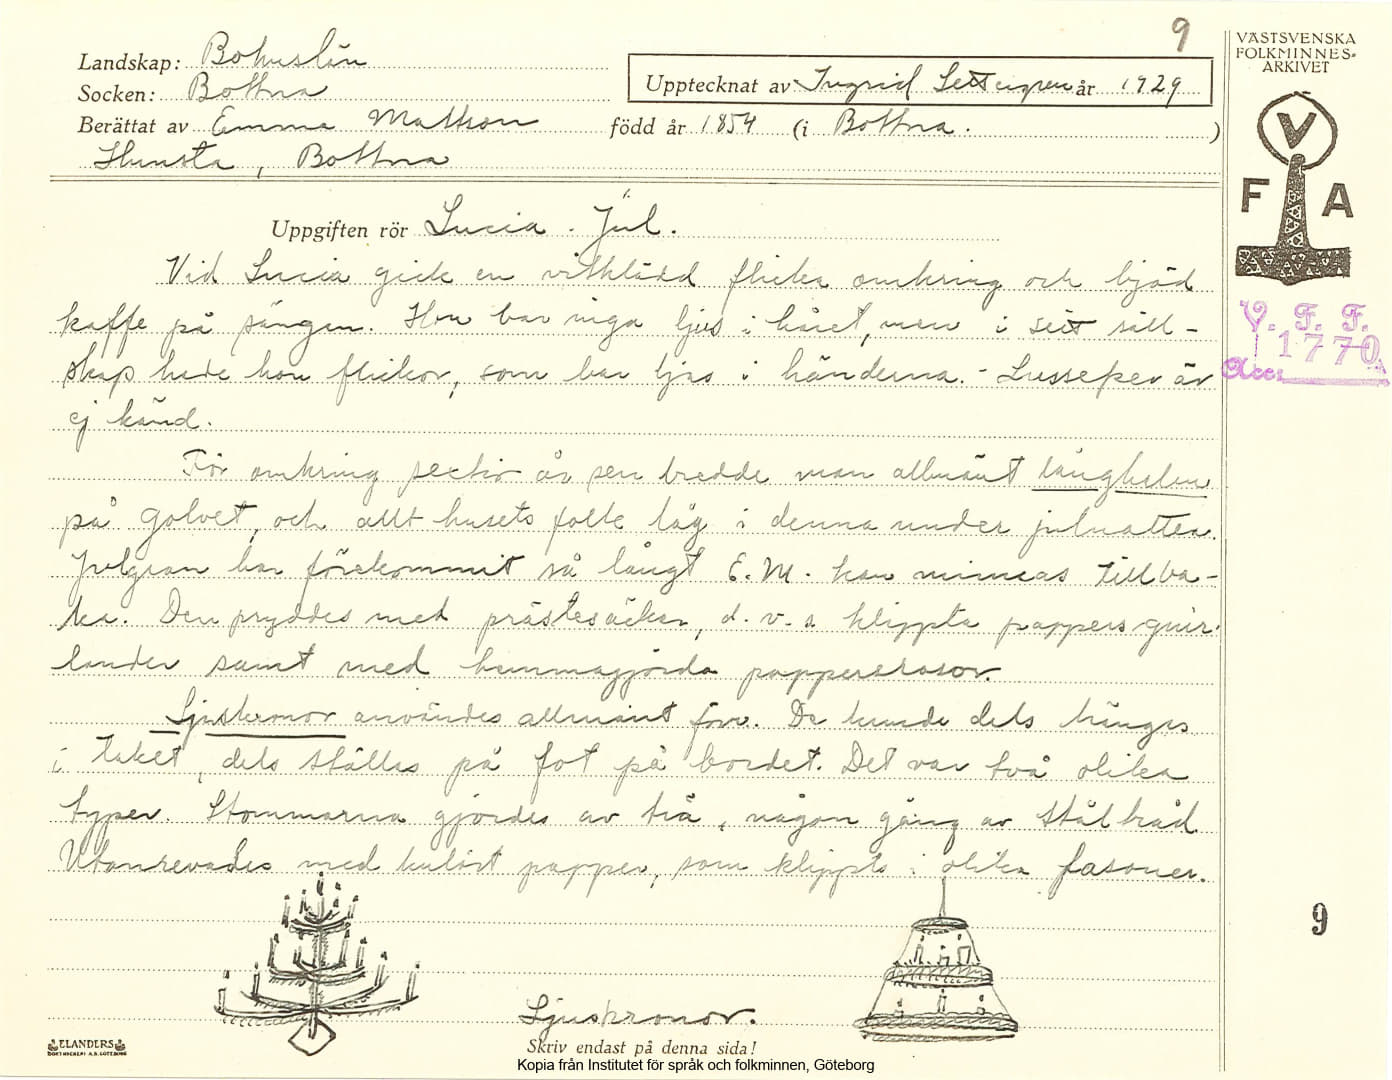 9
VÄSTSVENSKA
FOLKMINNES-
ARKIVET
Landskap: Bohuslän
Socken: Bottna
Upptecknat av Ingrid år 1929
Berättat av Emma Mattson född år 1854 (i Bottna. )
Hunsta, Bottna
V
F A
Uppgiften rör Lucia. Jul.
Vid Lucia gick en vitklädd flicka omkring och bjöd
kaffe på sängen. Hon bar inga ljus i håret, men i sitt säll-
skap hade hon flickor, som bar ljus i händerna. - Lussefer är
ej känd.
V. F. F.
1770
Acc:
För omkring sextio år sen bredde man allmänt långhalm
på golvet, och allt husets folk låg i denna under julnatten.
Julgran har förekommit så långt E. M. kan minnas tillba-
ka. Den pryddes med prästesäckar, d. v. s klippta pappersguir-
lander samt med hemmagjorda pappersrosor.
Ljuskronor användes allmänt förr. De kunde dels hänges
i taket, dels ställas på fot på bordet. Det var två olika
typer. Stommarna gjordes av trä, någon gång av ståltråd
med kulört papper, som klippts i olika fasoner.
9
Ljuskronor.
ELANDERS
BOKTRYCKERI A.B. GÖTEBORG
Skriv endast på denna sida!
Kopia från Institutet för språk och folkminnen, Göteborg